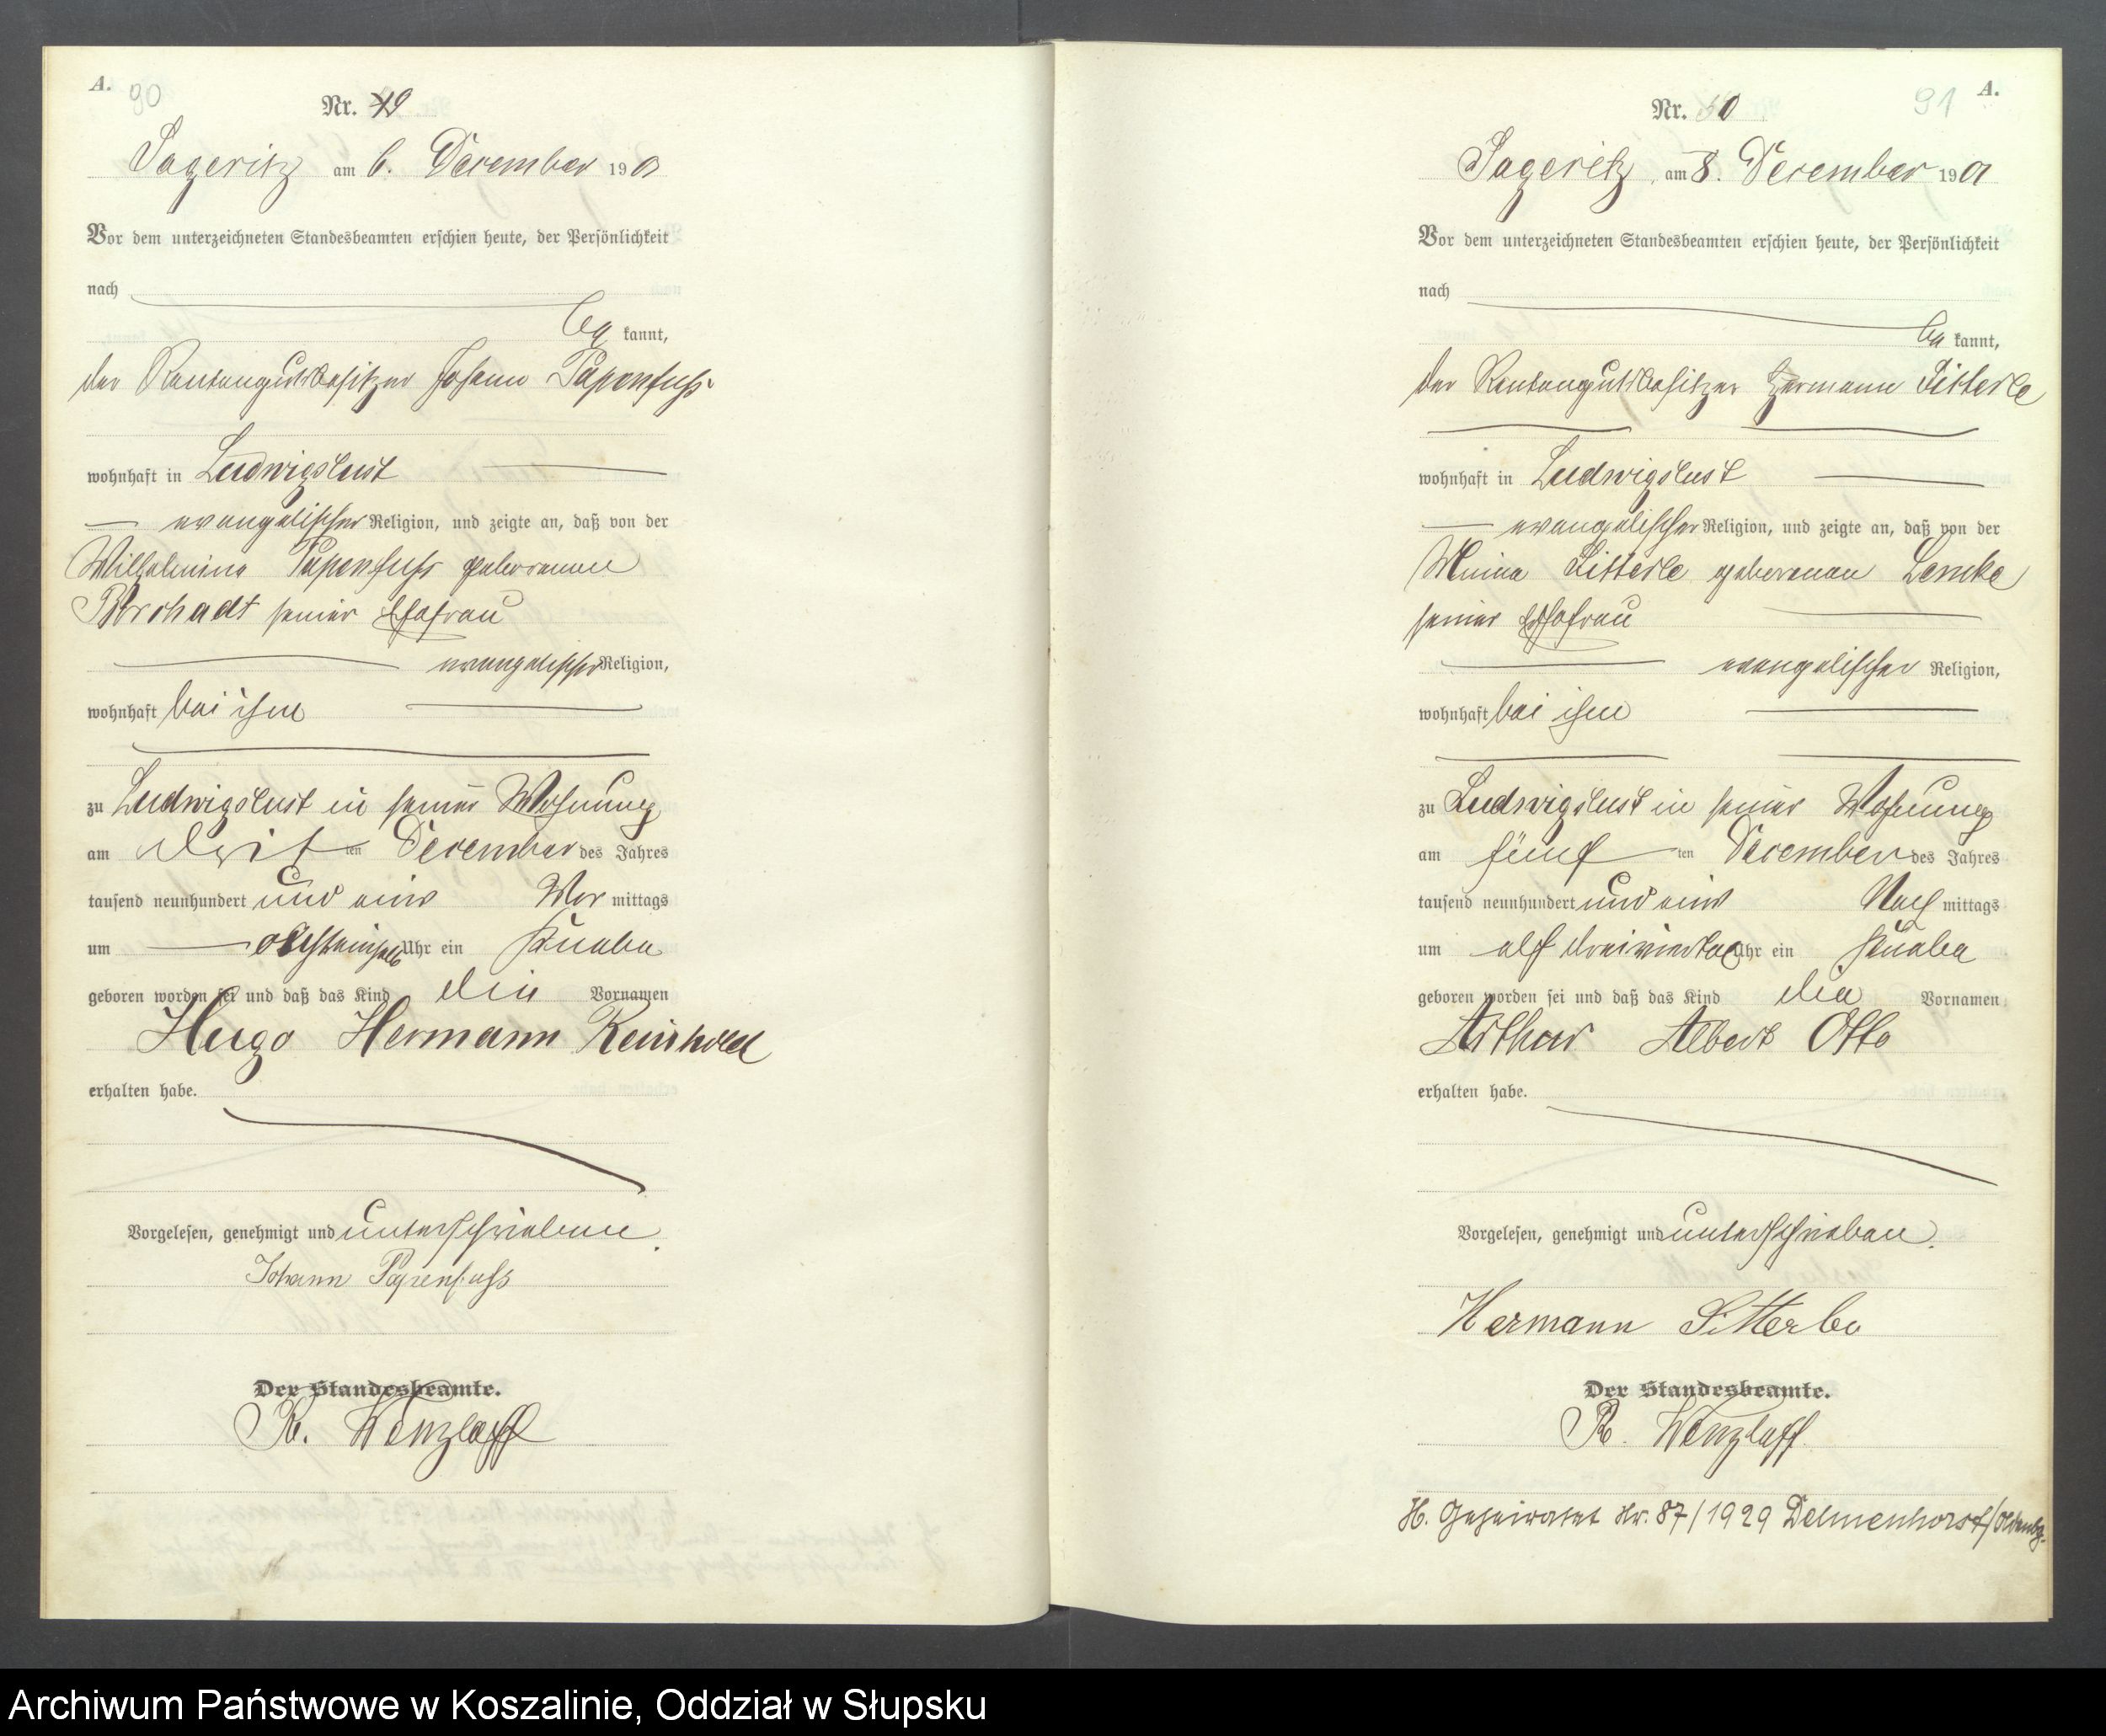 A.
90
Nr. 49
Sageritz am 6. Dezember 190
Vor dem unterzeichneten Standesbeamten erschien heute, der Persönlichkeit
nach
be kannt,
der Rentengutsbesitzer Johann Papenfuss
wohnhaft in Ludwigslust
evangelischer Religion, und zeigte an, daß von der
Wilhelmine Papenfuss geborenen
seiner Ehefrau
evangelischer Religion,
wohnhaft bei ihm
zu Ludwigslust in seiner Wohnung
am drit ten December des Jahres
tausend neunhundert und eins Vor mittags
um Uhr ein Knabe
geboren worden sei und daß das Kind die Vornamen
Hugo Hermann Reinhold
erhalten habe.
Vorgelesen, genehmigt und unterschrieben.
Johann Papenfuss
Der Standesbeamte.
R. Wenzlaff
A.
91
Nr. 50
Sageritz, am 8. December 190
Vor dem unterzeichneten Standesbeamten erschien heute, der Persönlichkeit
nach
be kannt,
der Rentengutsbesitzer Hermann
wohnhaft in Ludwigslust
evangelischer Religion, und zeigte an, daß von der
Minna geborenen Lemke
seiner Ehefrau
evangelischer Religion,
wohnhaft bei ihm
zu Ludwigslust in seiner Wohnung
am fünf ten December des Jahres
tausend neunhundert und eins Nach mittags
um elf dreiviertel Uhr ein Knabe
geboren worden sei und daß das Kind die Vornamen
Arthur Albert Otto
erhalten habe.
Vorgelesen, genehmigt und unterschrieben.
Hermann
Der Standesbeamte.
R. Wenzlaff.
H. Geheiratet Nr. 87/1929 Delmenhorst/Oldenbg.
Archiwum Państwowe w Koszalinie, Oddział w Słupsku